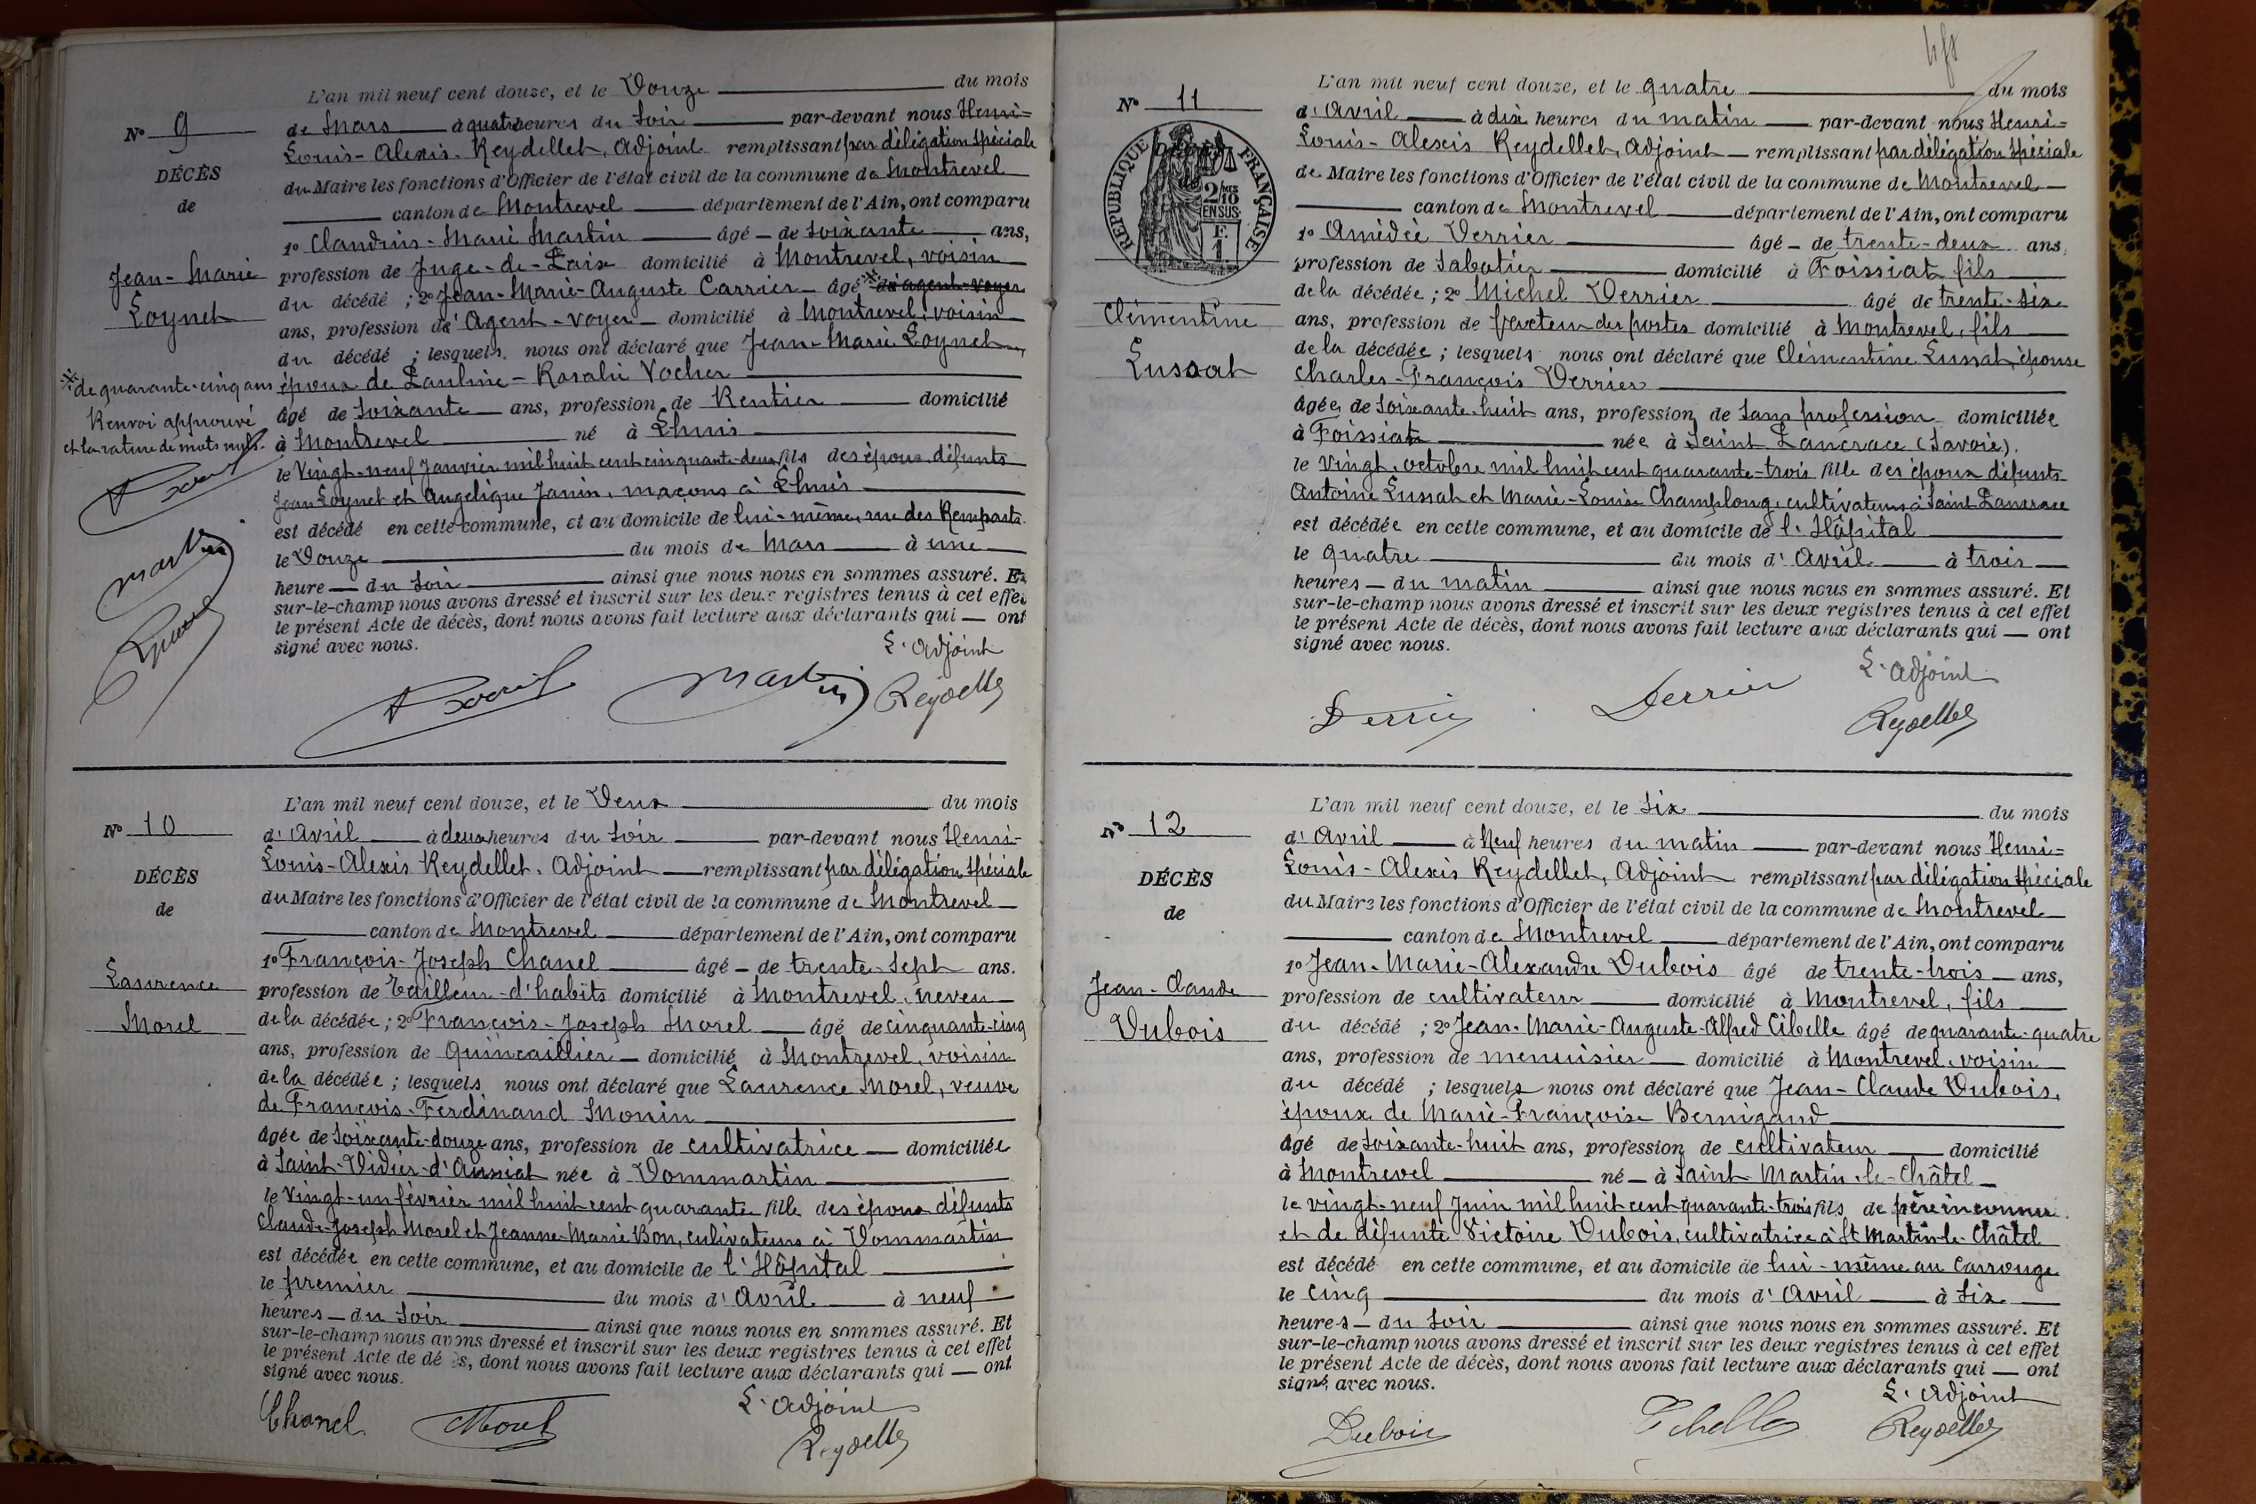 L'an mil neuf cent douze, et le Douze du mois
No 9
de Mars à quatre heures du Soir par-devant nous Henri-
Louis-Alexis-Reydellet, Adjoint remplissant par délégation spéciale
DÉCÈS
du Maire les fonctions d'Officier de l'état civil de la commune de Montrevel
de
canton de Montrevel département de l'Ain, ont comparu
1o Claudius-Marie Martin âgé de soixante ans,
Jean-Marie
profession de Juge-de-Paix domicilié à Montrevel, voisin
du décédé ; 2o Jean-Marie-Auguste Carrier âgé ※ agent-voyer
Loynet
ans, profession d'Agent-voyer domicilié à Montrevel, voisin
du décédé ; lesquels nous ont déclaré que Jean-Marie Loynet
※ de quarante-cinq ans
époux de Pauline-Rosalie Vocher
Renvoi approuvé
âgé de soixante ans, profession de Rentier domicilié
et la rature de mots nuls.
à Montrevel né à Lhuis
le Vingt-neuf Janvier mil huit cent cinquante-deux fils des époux défunts
Jean Loynet et Angélique Janin, maçons à Lhuis
est décédé en cette commune, et au domicile de lui-même, rue des Remparts.
le Douze du mois de Mars à une
heure du Soir ainsi que nous nous en sommes assuré. Et
sur-le-champ nous avons dressé et inscrit sur les deux registres tenus à cet effet
le présent Acte de décès, dont nous avons fait lecture aux déclarants qui ont
signé avec nous.
L'Adjoint
Martin
Reydellet
Martin
Reydellet
L'an mil neuf cent douze, et le Deux du mois
No 10
d'Avril à deux heures du Soir par-devant nous Henri-
Louis-Alexis Reydellet, Adjoint remplissant par délégation spéciale
DÉCÈS
du Maire les fonctions d'Officier de l'état civil de la commune de Montrevel
de
canton de Montrevel département de l'Ain, ont comparu
1o François-Joseph Chanel âgé de trente-sept ans.
Laurence
profession de Tailleur-d'habits domicilié à Montrevel, neveu
Morel
de la décédée ; 2o François-Joseph Morel âgé de cinquante-cinq
ans, profession de Quincaillier domicilié à Montrevel, voisin
de la décédée ; lesquels nous ont déclaré que Laurence Morel, veuve
de François-Ferdinand Monin
âgée de soixante-douze ans, profession de cultivatrice domiciliée
à Saint-Didier-d'Aussiat née à Dommartin
le Vingt-un février mil huit cent quarante fille des époux défunts
Claude-Joseph Morel et Jeanne-Marie Bon, cultivateurs à Dommartin
est décédée en cette commune, et au domicile de l'Hôpital
le premier du mois d'Avril à neuf
heures du Soir ainsi que nous nous en sommes assuré. Et
sur-le-champ nous avons dressé et inscrit sur les deux registres tenus à cet effet
le présent Acte de décès, dont nous avons fait lecture aux déclarants qui ont
signé avec nous.
L'Adjoint
Chanel
Morel
Reydellet
L'an mil neuf cent douze, et le quatre du mois
No 11
d'Avril à dix heures du matin par-devant nous Henri-
Louis-Alexis Reydellet, Adjoint remplissant par délégation spéciale
RÉPUBLIQUE FRANÇAISE
2/10 EN SUS
F. 1
de Maire les fonctions d'Officier de l'état civil de la commune de Montrevel
canton de Montrevel département de l'Ain, ont comparu
1o Amédée Derrier âgé de trente-deux ans,
profession de Sabotier domicilié à Foissiat, fils
de la décédée ; 2o Michel Derrier âgé de trente-six
Clémentine
ans, profession de facteur des postes domicilié à Montrevel, fils
Lussat
de la décédée ; lesquels nous ont déclaré que Clémentine Lussat, épouse
Charles-François Derrier
âgée de soixante-huit ans, profession de Sans profession domiciliée
à Foissiat née à Saint Pancrace (Savoie).
le Vingt octobre mil huit cent quarante-trois fille des époux défunts
Antoine Lussat et Marie-Louise Champlong, cultivateurs à Saint Pancrace
est décédée en cette commune, et au domicile de l'Hôpital
le quatre du mois d'Avril à trois
heures du matin ainsi que nous nous en sommes assuré. Et
sur-le-champ nous avons dressé et inscrit sur les deux registres tenus à cet effet
le présent Acte de décès, dont nous avons fait lecture aux déclarants qui ont
signé avec nous.
L'Adjoint
Derrier
Derrier
Reydellet
L'an mil neuf cent douze, et le Six du mois
No 12
d'Avril à Neuf heures du matin par-devant nous Henri-
Louis-Alexis Reydellet, Adjoint remplissant par délégation spéciale
DÉCÈS
du Maire les fonctions d'Officier de l'état civil de la commune de Montrevel
de
canton de Montrevel département de l'Ain, ont comparu
1o Jean-Marie-Alexandre Dubois âgé de trente-trois ans,
Jean-Claude
profession de cultivateur domicilié à Montrevel, fils
Dubois
du décédé ; 2o Jean-Marie-Auguste-Alfred Cibelle âgé de quarante-quatre
ans, profession de menuisier domicilié à Montrevel, voisin
du décédé ; lesquels nous ont déclaré que Jean-Claude Dubois,
époux de Marie-Françoise Bernigaud
âgé de soixante-huit ans, profession de cultivateur domicilié
à Montrevel né à Saint Martin-le-Châtel
le vingt-neuf Juin mil huit cent quarante-trois fils de père inconnu
et de défunte Victoire Dubois, cultivatrice à St Martin-le-Châtel
est décédé en cette commune, et au domicile de lui-même au Carrouge
le cinq du mois d'Avril à Six
heures du Soir ainsi que nous nous en sommes assuré. Et
sur-le-champ nous avons dressé et inscrit sur les deux registres tenus à cet effet
le présent Acte de décès, dont nous avons fait lecture aux déclarants qui ont
signé avec nous.
L'Adjoint
Dubois
Reydellet